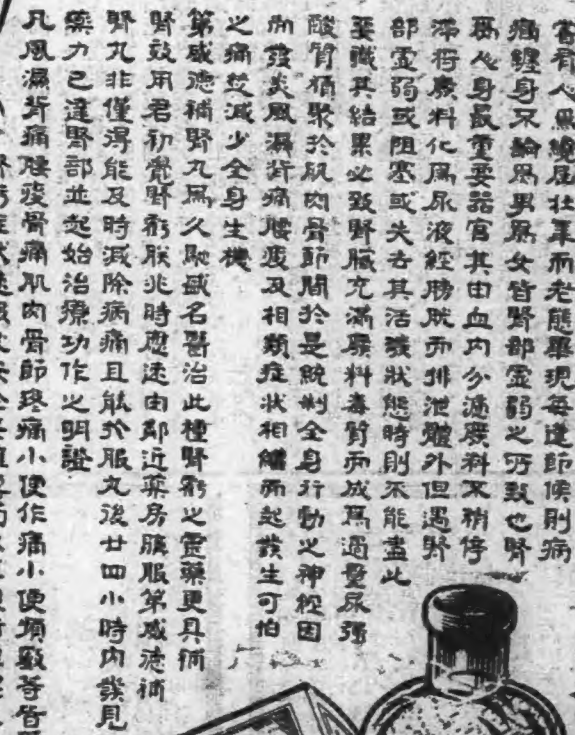 當有人焉纔屆壯年而老態畢現每逢節候則病
痛纏身不論爲男爲女皆腎部虛弱之所致也腎
爲人身最重要器官其由血內分濾廢料不稍停
滯將廢料化爲尿液經膀胱而排泄體外但遇腎
部虛弱或阻塞或失去其活潑狀態時則不能盡此
要職其結果必致腎臟充滿廢料毒質而成爲過量尿彊
酸質積聚於肌肉骨節間於是統制全身行動之神經因
而發炎風濕背痛腰痠及相類症狀相繼而起發生可怕
之痛楚減少全身生機
第威德補腎丸爲久馳盛名醫治此種腎虧之靈藥更具補
腎效用君初覺腎虧朕兆時應速由鄰近藥房購服第威德補
腎丸非僅得能及時減除病痛且能於服丸後廿四小時內發見
藥力已達腎部並起始治療功作之明證
凡風濕背痛腰痠骨痛肌肉骨節疼痛小便作痛小便頻數等皆